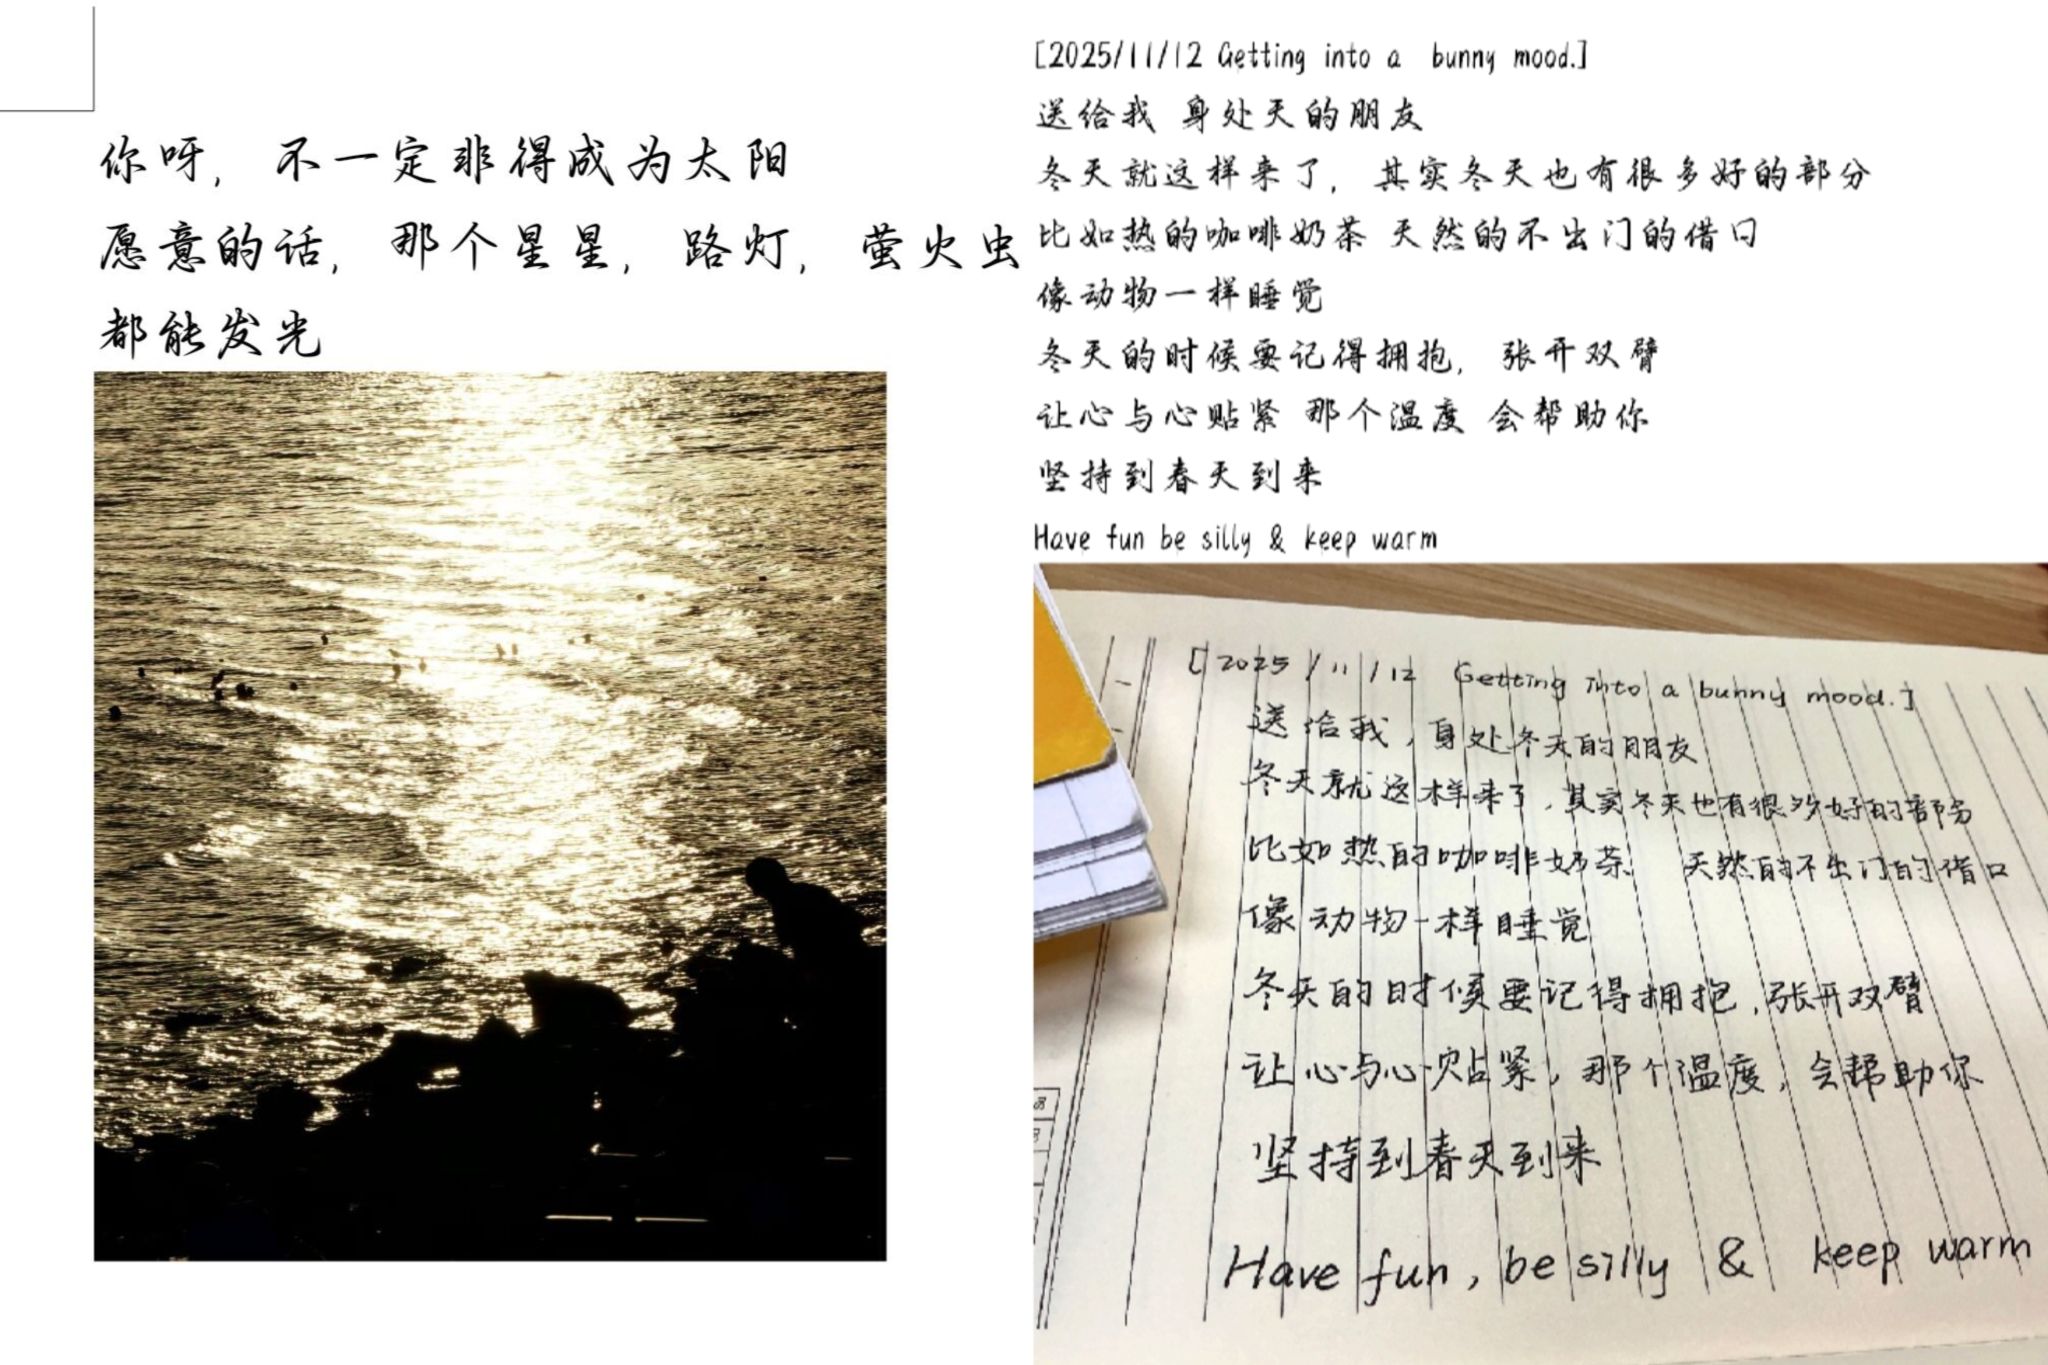 你呀，不一定非得成为太阳
愿意的话，那个星星，路灯，萤火虫
都能发光
[2025/11/12 Getting into a bunny mood.]
送给我 身处天的朋友
冬天就这样来了，其实冬天也有很多好的部分
比如热的咖啡奶茶 天然的不出门的借口
像动物一样睡觉
冬天的时候要记得拥抱，张开双臂
让心与心贴紧 那个温度 会帮助你
坚持到春天到来
Have fun be silly & keep warm
[2025/11/12 Getting into a bunny mood.]
送给我，身处冬天的朋友
冬天就这样来了，其实冬天也有很多好的部分
比如热的咖啡奶茶 天然的不出门的借口
像动物一样睡觉
冬天的时候要记得拥抱，张开双臂
让心与心贴紧，那个温度，会帮助你
坚持到春天到来
Have fun, be silly & keep warm